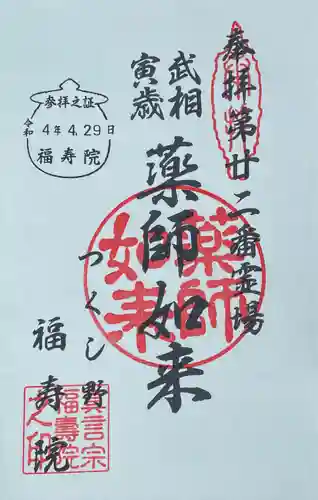 奉拝第廿二番霊場
武相
寅歳
薬師如来
薬師
如来
つくし野
福寿院
参拝之証
令和4年4.29日
福寿院
真言宗
福壽院